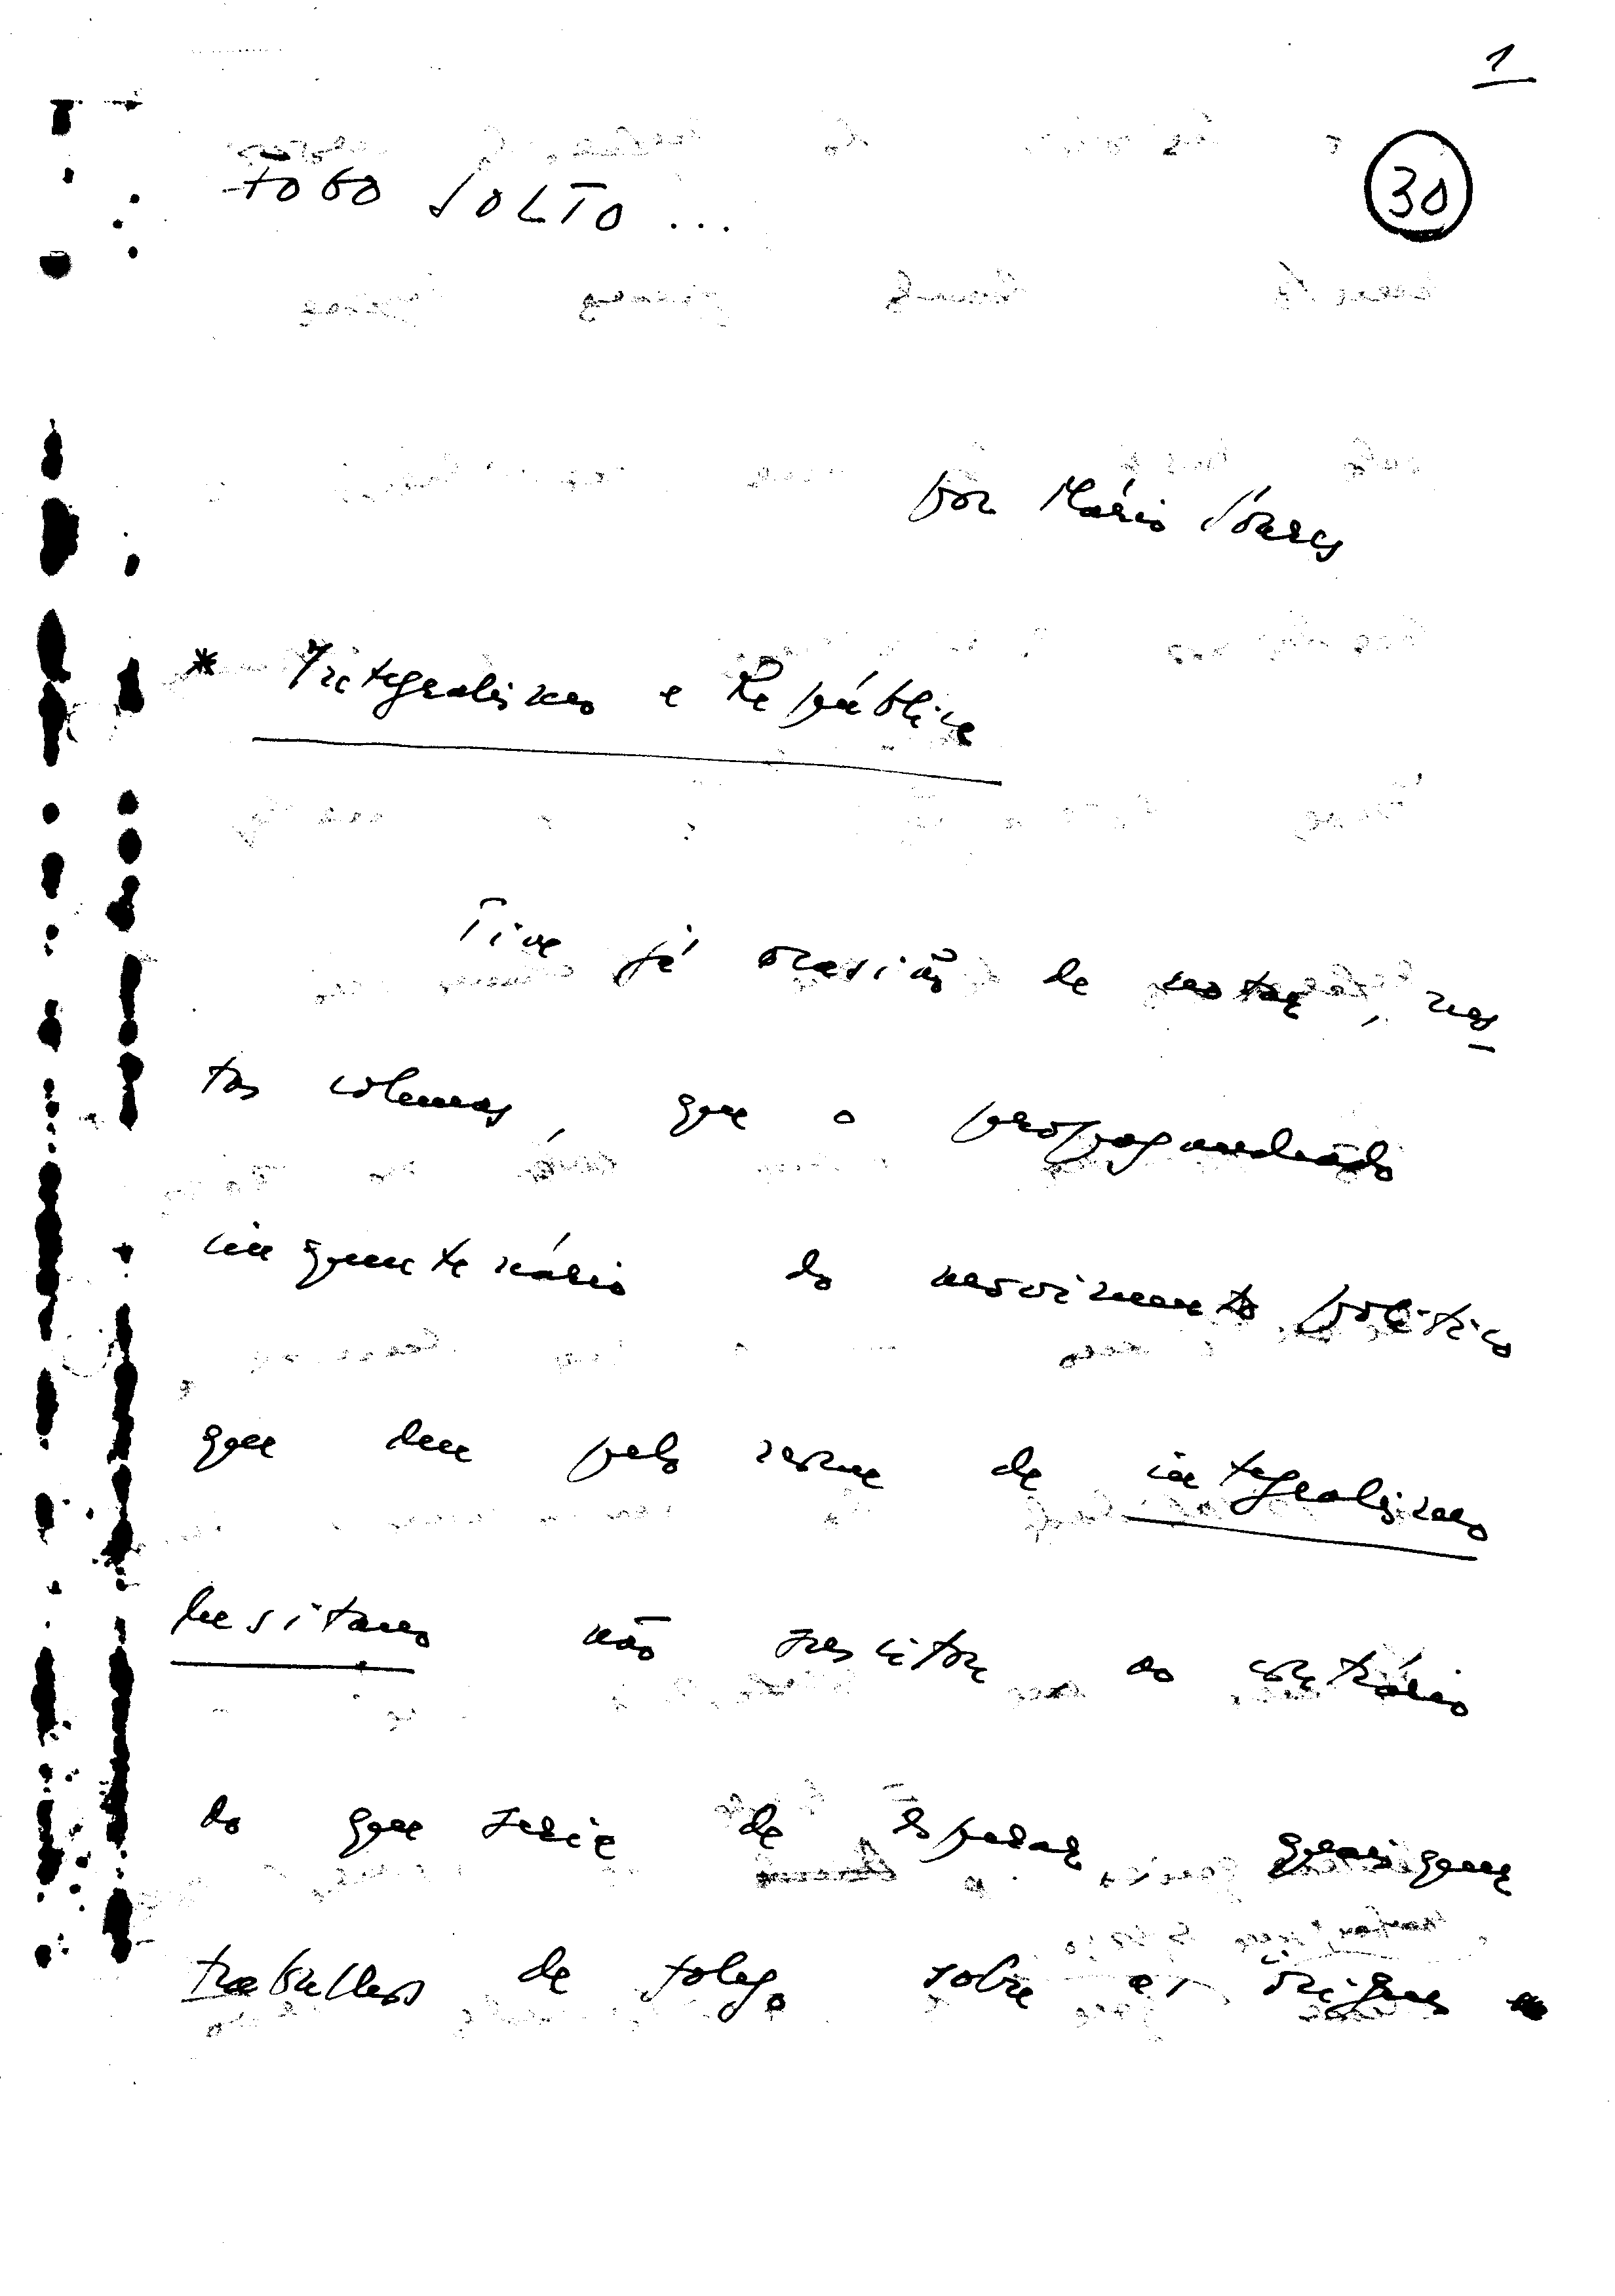 1
FOGO SOLTO ...
30
por Mário Soares
* Integralismo e República
Tive já ocasião de notar, nes
tas colunas, que o propagandeado
cinquentenário do movimento político
que deu pelo nome de integralismo
lusitano não suscitou ao contrário
do que seria de esperar, quaisquer
trabalhos de fôlego sobre as origens